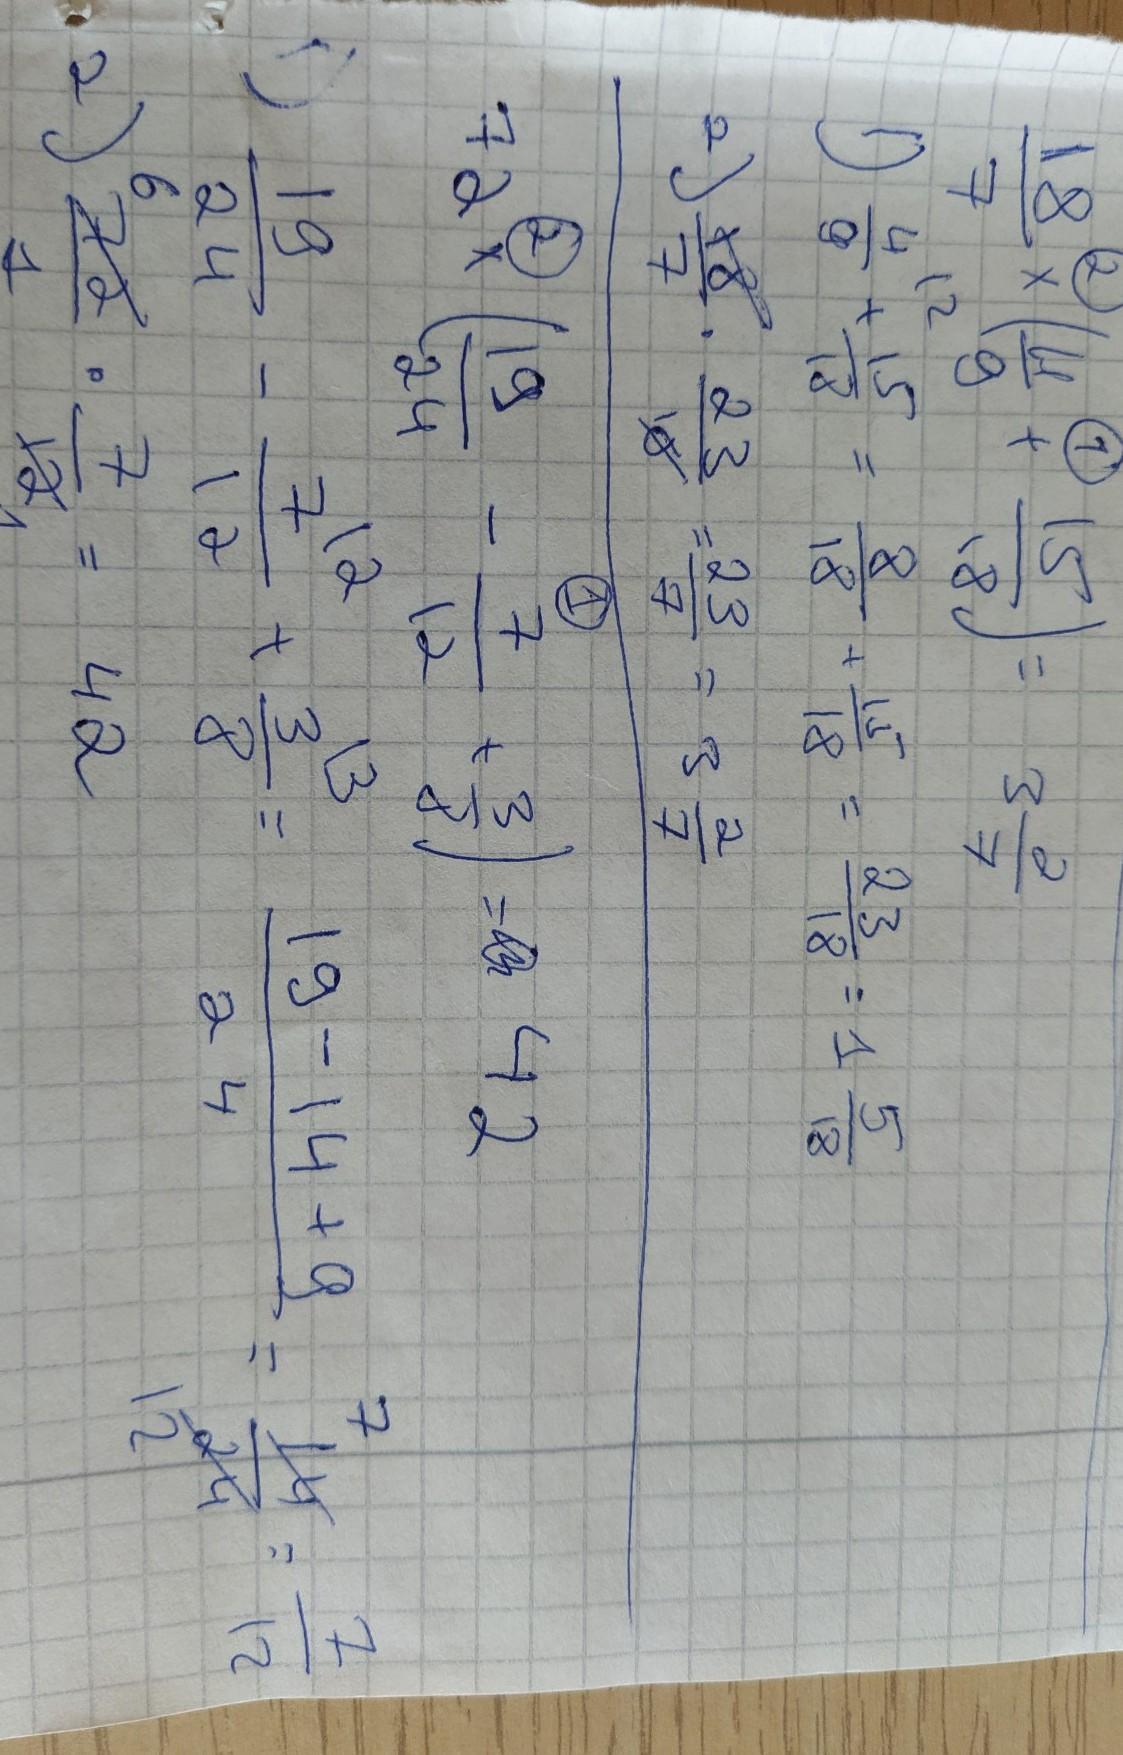 18/7 ② × (4/9 + ① 15/18) = 3 2/7
1) 4/9 \2 + 15/18 = 8/18 + 15/18 = 23/18 = 1 5/18
2) 18/7 · 23/18 = 23/7 = 3 2/7
72 ② × (19/24 - 7/12 ① + 3/8) = 42
1) 19/24 - 7/12 \2 + 3/8 \3 = 19-14+9/24 = 7 14/24 12 = 7/12
2) 6 72/1 · 7/12 1 = 42